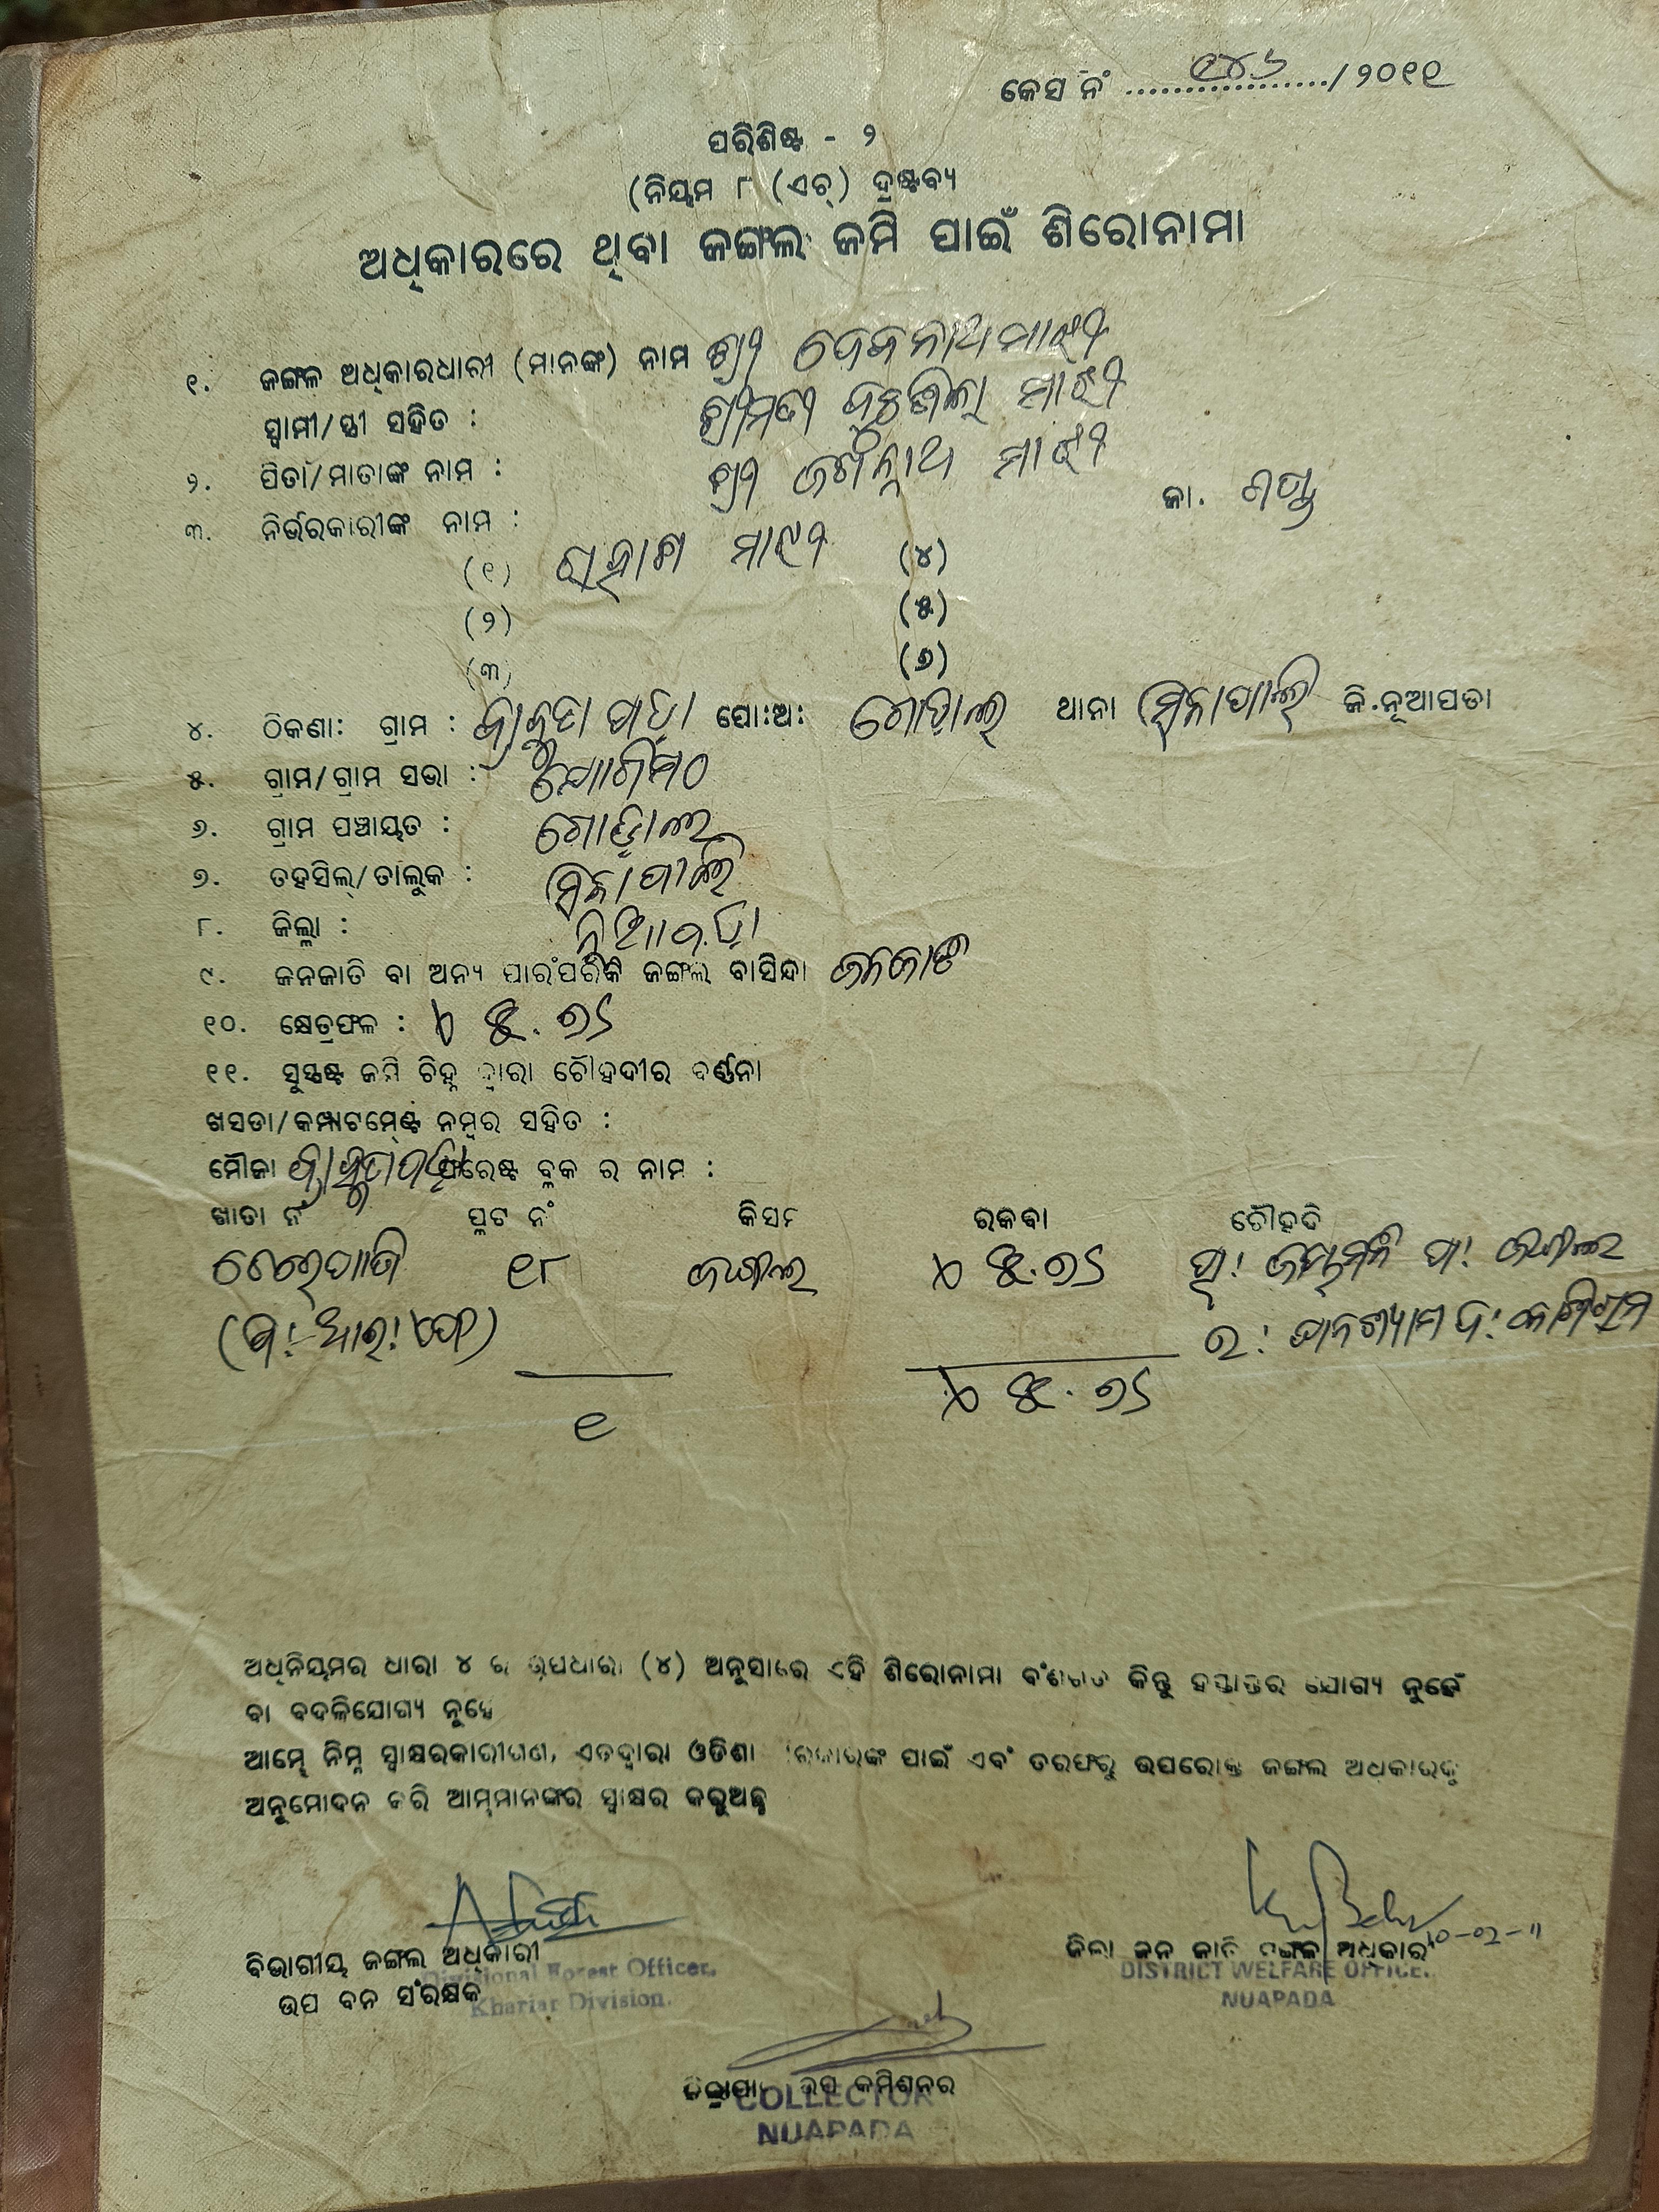 କେସ ନଂ ୧୪୬/୨୦୧୧
ପରିଶିଷ୍ଟ - ୨
(ନିୟମ ୮ (ଏଚ୍) ଦ୍ରଷ୍ଟବ୍ୟ
ଅଧିକାରରେ ଥିବା ଜଙ୍ଗଲ ଜମି ପାଇଁ ଶିରୋନାମା
୧. ଜଙ୍ଗଳ ଅଧିକାରଧାରୀ (ମାନଙ୍କ) ନାମ ଶ୍ରୀ ଦେବନାଥ ମାଝୀ
ସ୍ଵାମୀ/ସ୍ତ୍ରୀ ସହିତ : ଶ୍ରୀମତୀ ମାଝୀ
୨. ପିତା/ମାତାଙ୍କ ନାମ : ଶ୍ରୀ ଜଗନ୍ନାଥ ମାଝୀ ଜା. ଗଣ୍ଡ
୩. ନିର୍ଭରକାରୀଙ୍କ ନାମ :
(୧) ମାଝୀ (୪)
(୨) (୫)
(୩) (୬)
୪. ଠିକଣା: ଗ୍ରାମ : ପୋ:ଅ: ଗୋଡ଼ାଲ ଥାନା ସିନାପାଲି ଜି.ନୂଆପଡା
୫. ଗ୍ରାମ/ଗ୍ରାମ ସଭା :
୬. ଗ୍ରାମ ପଞ୍ଚାୟତ : ଗୋଡ଼ାଲ
୭. ତହସିଲ୍/ତାଲୁକ : ସିନାପାଲି
୮. ଜିଲ୍ଲା : ନୂଆପଡ଼ା
୯. ଜନଜାତି ବା ଅନ୍ୟ ପାରଂପରିକ ଜଙ୍ଗଲ ବାସିନ୍ଦା ଜନଜାତି
୧୦. କ୍ଷେତ୍ରଫଳ : ୭୫
୧୧. ସୁସ୍ପଷ୍ଟ ଜମି ଚିହ୍ନ ଦ୍ୱାରା ଚୌହଦୀର ବର୍ଣ୍ଣନା
ଖସଡା/କମ୍ପାଟମେଣ୍ଟ ନମ୍ବର ସହିତ :
ମୌଜା ଫରେଷ୍ଟ ବ୍ଲକ ର ନାମ :
ଖାତା ନଂ ପ୍ଲଟ ନଂ କିସମ ରକବା ଚୌହଦି
୧୮ ଜଙ୍ଗଲ ୭୫ ପା! ଜଙ୍ଗଲ
୭୫
୧
ଅଧିନିୟମର ଧାରା ୪ ର ଉପଧାରା (୪) ଅନୁସାରେ ଏହି ଶିରୋନାମା ବଂଶଗତ କିନ୍ତୁ ହସ୍ତାନ୍ତର ଯୋଗ୍ୟ ନୁହେଁ
ବା ବଦଳିଯୋଗ୍ୟ ନୁହେ
ଆମ୍ଭେ ନିମ୍ନ ସ୍ୱାକ୍ଷରକାରୀଗଣ, ଏତଦ୍ୱାରା ଓଡିଶା ସରକାରଙ୍କ ପାଇଁ ଏବଂ ତରଫରୁ ଉପରୋକ୍ତ ଜଙ୍ଗଲ ଅଧିକାରକୁ
ଅନୁମୋଦନ କରି ଆମ୍ଭମାନଙ୍କର ସ୍ୱାକ୍ଷର କରୁଅଛୁ
୧୦-୦୨-୧୧
ବିଭାଗୀୟ ଜଙ୍ଗଲ ଅଧିକାରୀ
Divisional Forest Officer.
ଉପ ବନ ସଂରକ୍ଷକ
Khariar Division.
ଜିଲ୍ଲା ଜନ ଜାତି ମଙ୍ଗଳ ଅଧିକାରୀ
DISTRICT WELFARE OFFICER.
NUAPADA
ଜିଲ୍ଲାପାଳ ଉପ କମିଶନର
COLLECTOR
NUAPADA